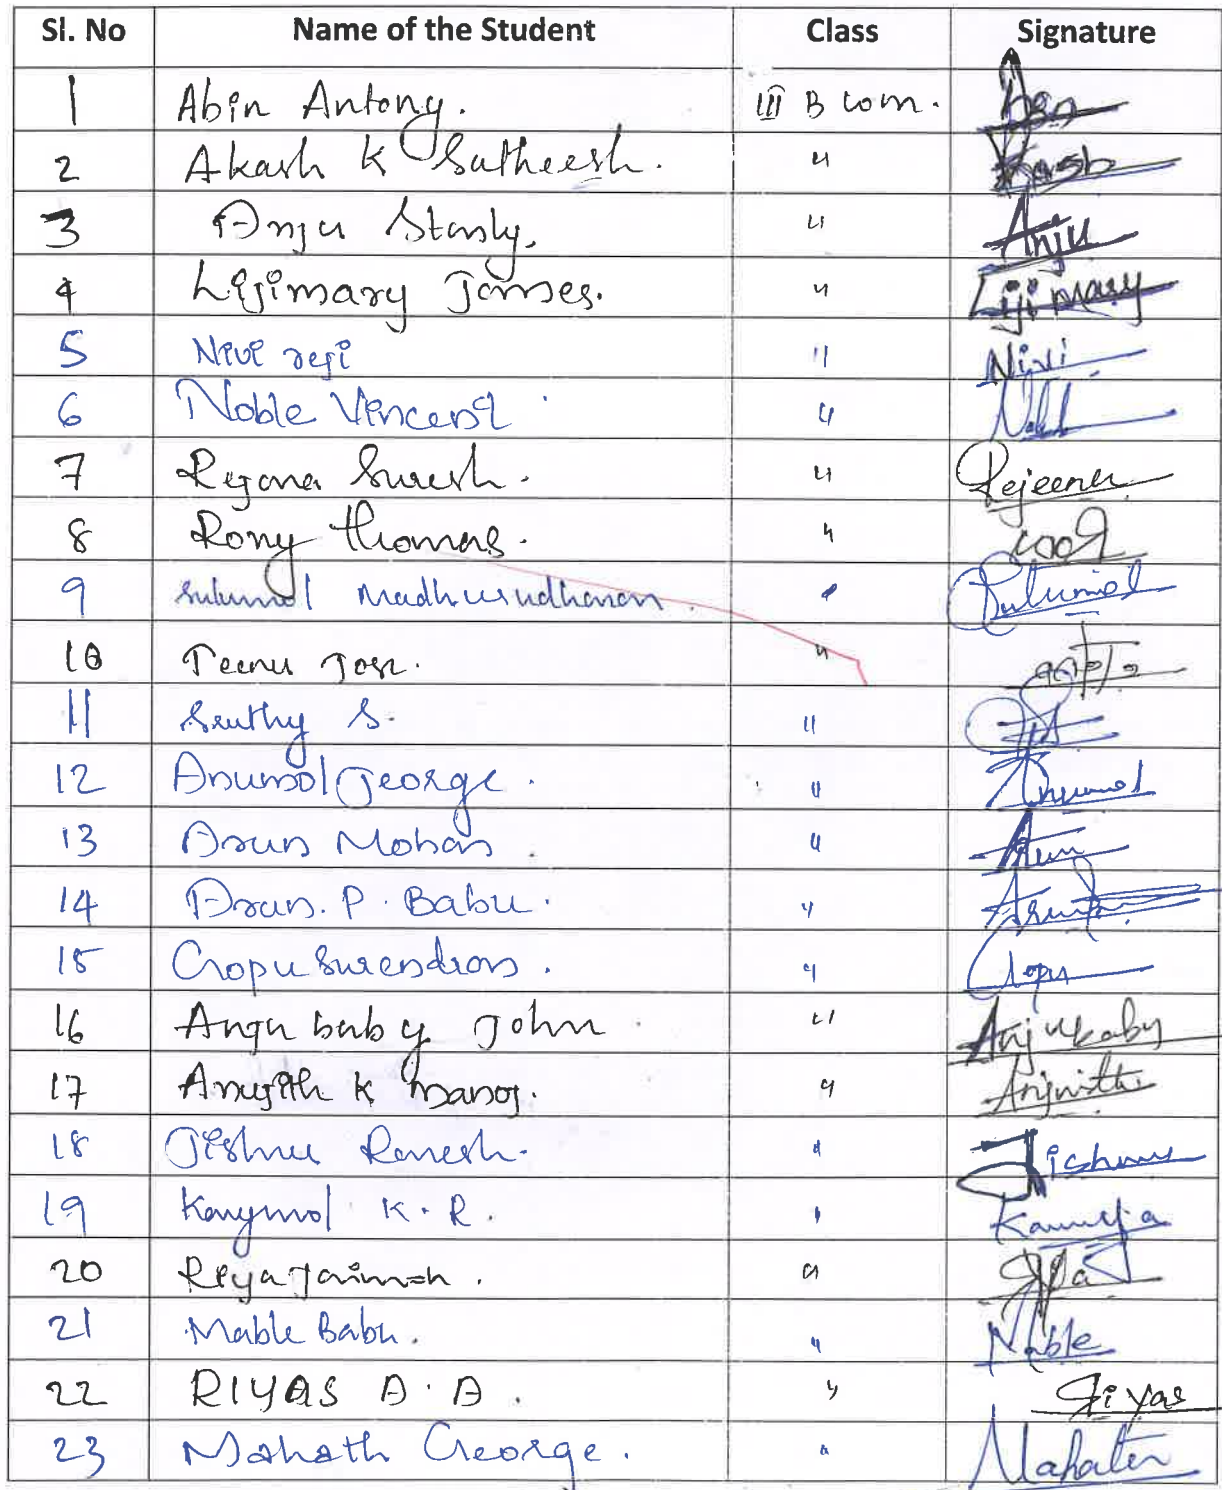 Sl. No Name of the Student Class Signature
1 Abin Antony. III B com. Abin
2 Akash K Satheesh. " Akash
3 Anju Stanly. " Anju
4 Lijimary James. " Lijimary
5 Nivi reji " Nivi
6 Noble Vincent "
7 Rejona Suresh. " Rejeena
8 Rony thomas. "
9 Sulumol Madhusudhanan. " Sulumol
10 Teenu Jose. "
11 Sruthy S. "
12 Anumol George. " Anumol
13 Arun Mohan. " Arun
14 Arun. P. Babu. " Arun
15 Gopu Surendran. " Gopu
16 Anju baby John " Anju baby
17 Anujith K Manoj. "
18 Jishnu Ramesh. " Jishnu
19 K. R. "
20 Riya "
21 Mable Babu. " Mable
22 RIYAS A. A. " Riyas
23 Mahath George. "